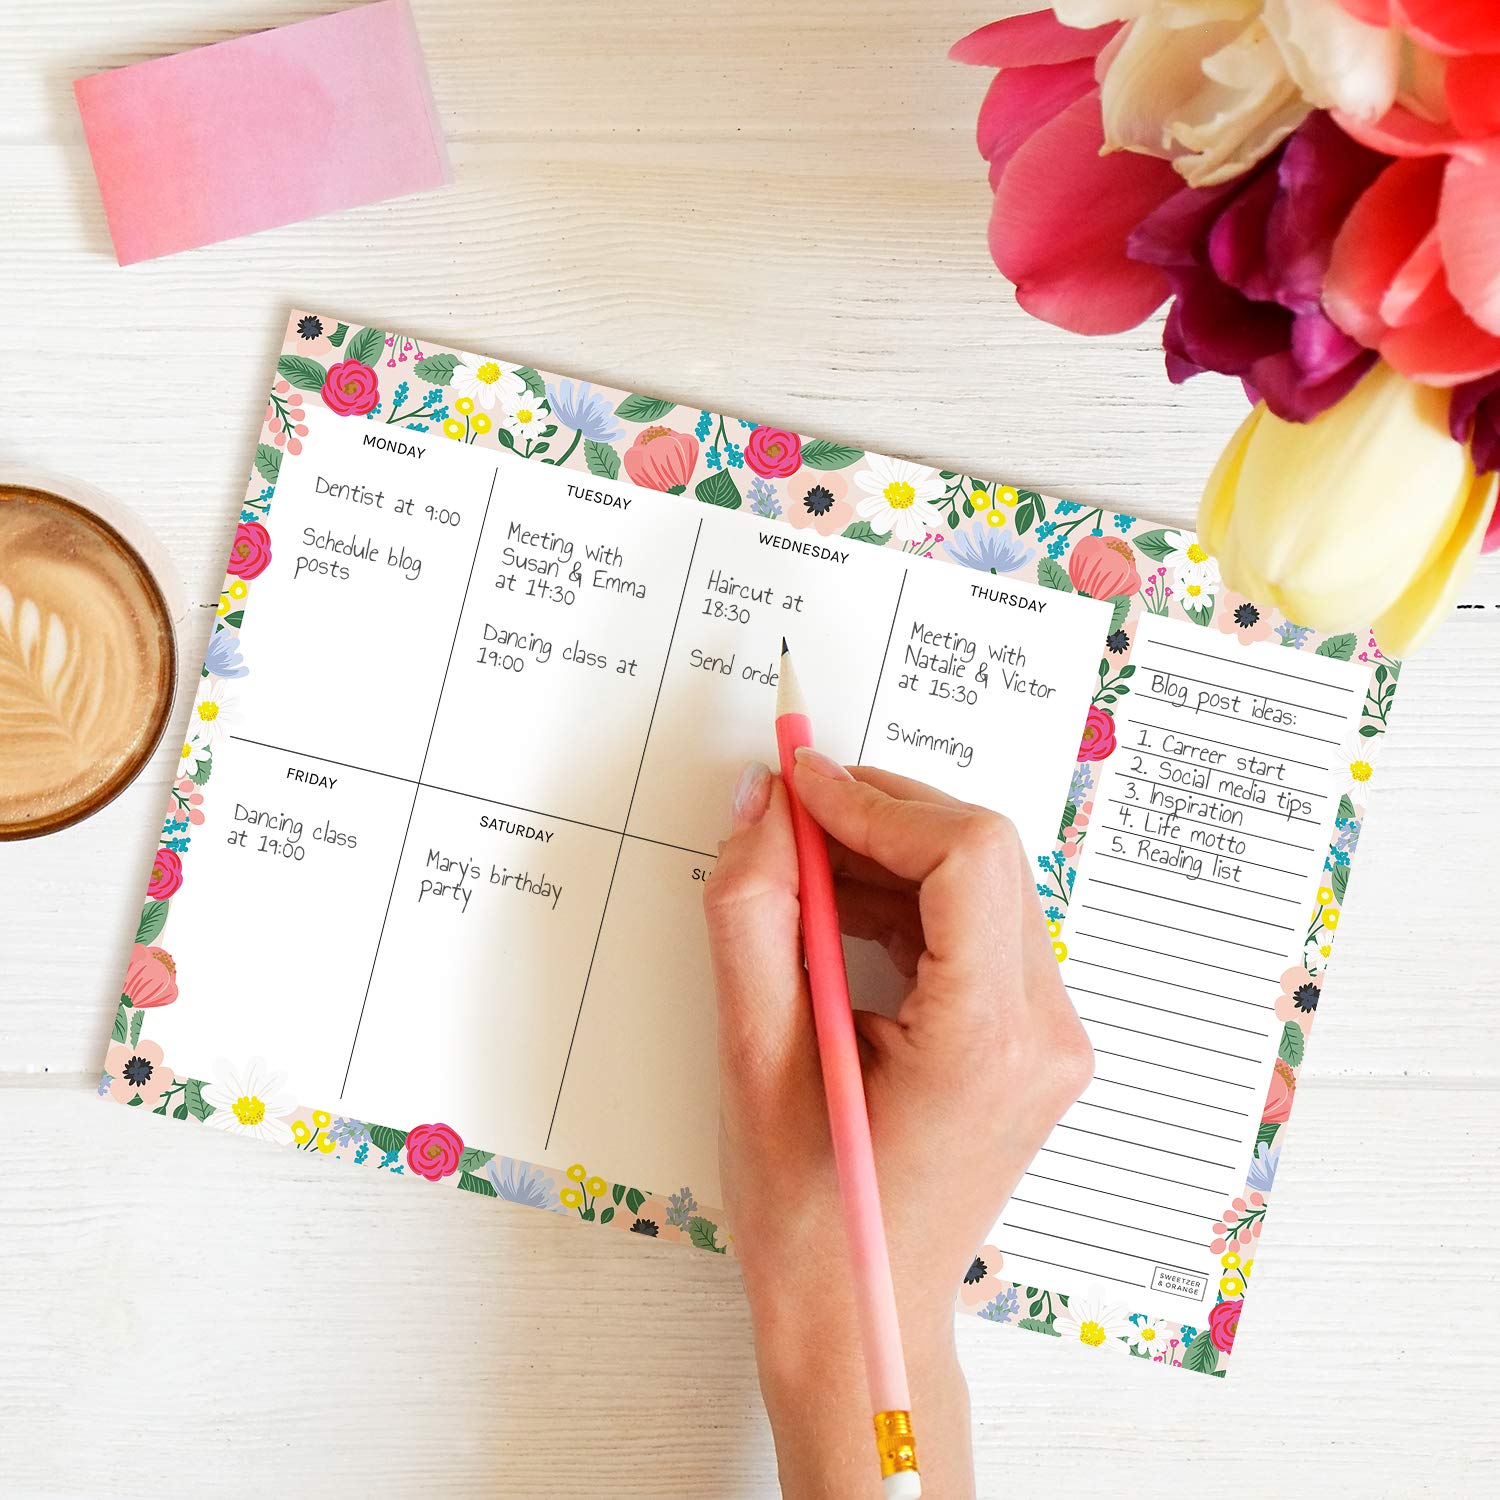 MONDAY
Dentist at 9:00
Schedule blog
posts
TUESDAY
Meeting with
Susan & Emma
at 14:30
Dancing class at
19:00
WEDNESDAY
Haircut at
18:30
Send orde
THURSDAY
Meeting with
Natalie & Victor
at 15:30
Swimming
FRIDAY
Dancing class
at 19:00
SATURDAY
Mary's birthday
party
SU
Blog post ideas:
1. Carreer start
2. Social media tips
3. Inspiration
4. Life motto
5. Reading list
SWEETZER
& ORANGE